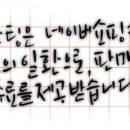 팅은 네이버쇼핑
의 일환으로, 판매
수수료를 제공받습니다